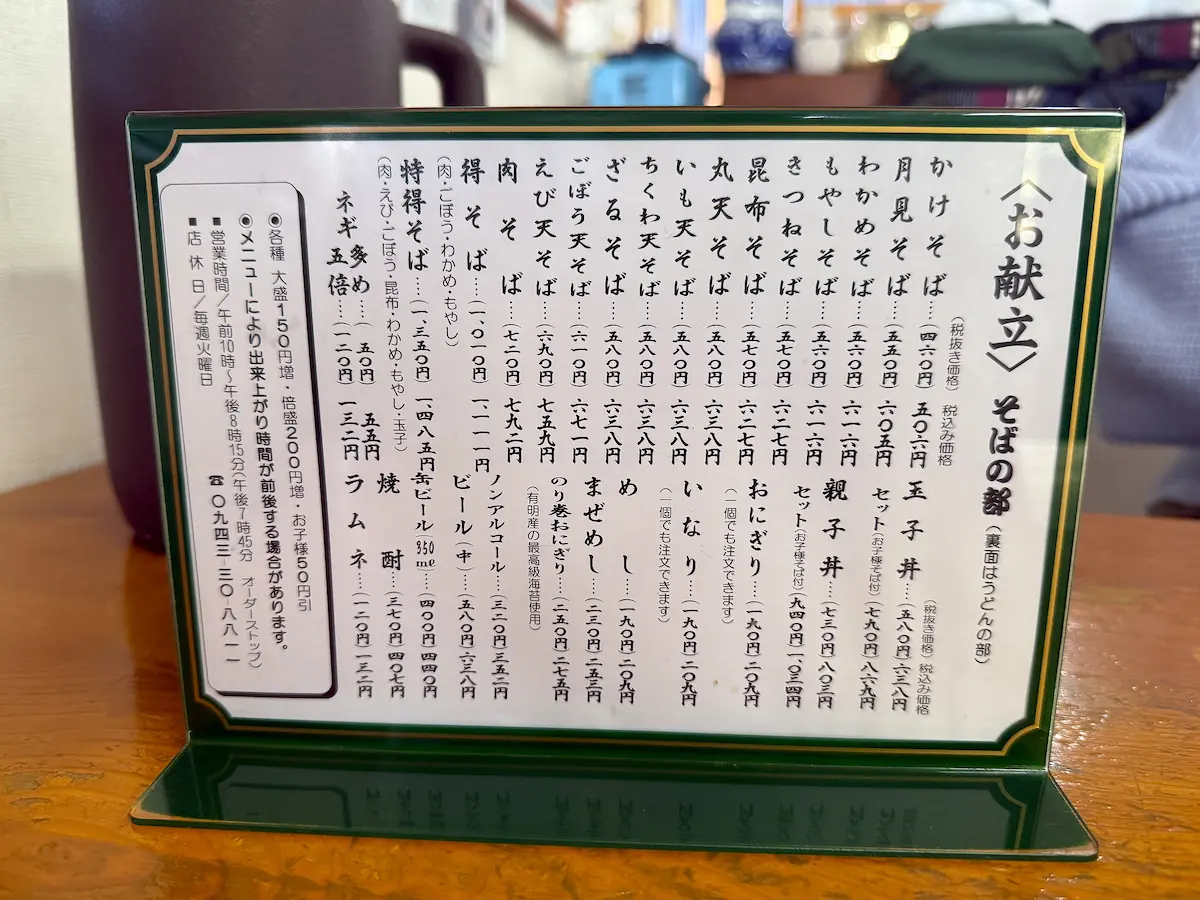 〈お献立〉 そばの部(裏面はうどんの部)
(税抜き価格) 税込み価格
かけそば…(四六〇円) 五〇六円
月見そば…(五五〇円) 六〇五円
わかめそば…(五六〇円) 六一六円
もやしそば…(五六〇円) 六一六円
きつねそば…(五七〇円) 六二七円
昆布そば…(五七〇円) 六二七円
丸天そば…(五八〇円) 六三八円
いも天そば…(五八〇円) 六三八円
ちくわ天そば…(五八〇円) 六三八円
ざるそば…(五八〇円) 六三八円
ごぼう天そば…(六一〇円) 六七一円
えび天そば…(六九〇円) 七五九円
肉そば…(七二〇円) 七九二円
得そば…(一、〇一〇円) 一、一一一円
(肉・ごぼう・わかめ・もやし)
特得そば…(一、三五〇円) 一、四八五円
(肉・えび・ごぼう・昆布・わかめ・もやし・玉子)
ネギ多め…(五〇円) 五五円
五倍…(一二〇円) 一三二円
(税抜き価格) 税込み価格
玉子丼…(五八〇円) 六三八円
セット(お子様そば付)(七九〇円) 八六九円
親子丼…(七三〇円) 八〇三円
セット(お子様そば付)(九四〇円) 一、〇三四円
おにぎり…(一九〇円) 二〇九円
(一個でも注文できます)
いなり…(一九〇円) 二〇九円
(一個でも注文できます)
めし…(一九〇円) 二〇九円
まぜめし…(二三〇円) 二五三円
のり巻おにぎり…(二五〇円) 二七五円
(有明産の最高級海苔使用)
ノンアルコール…(三二〇円) 三五二円
ビール(中)…(五八〇円) 六三八円
缶ビール(350ml)…(四〇〇円) 四四〇円
焼酎…(三七〇円) 四〇七円
ラムネ…(一二〇円) 一三二円
◉各種 大盛150円増・倍盛200円増・お子様50円引
◉メニューにより出来上がり時間が前後する場合があります。
■営業時間/午前10時~午後8時15分(午後7時45分 オーダーストップ)
■店休日/毎週火曜日 ☎〇九四三−三〇−八八一一